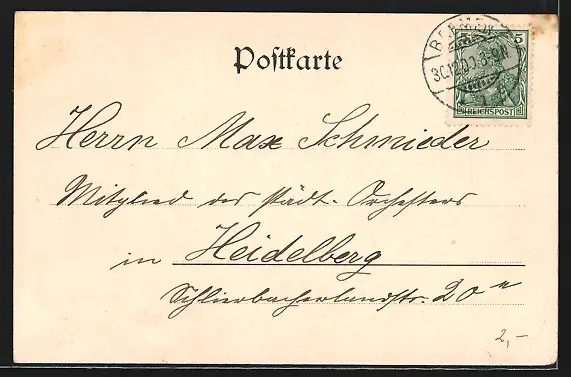 Postkarte
BREMEN
5
30.12.00.
REICHSPOST
Herrn Max Schmieder
Mitglied des städt. Orchesters
in Heidelberg
Schlierbacherlandstr. 20
2,-